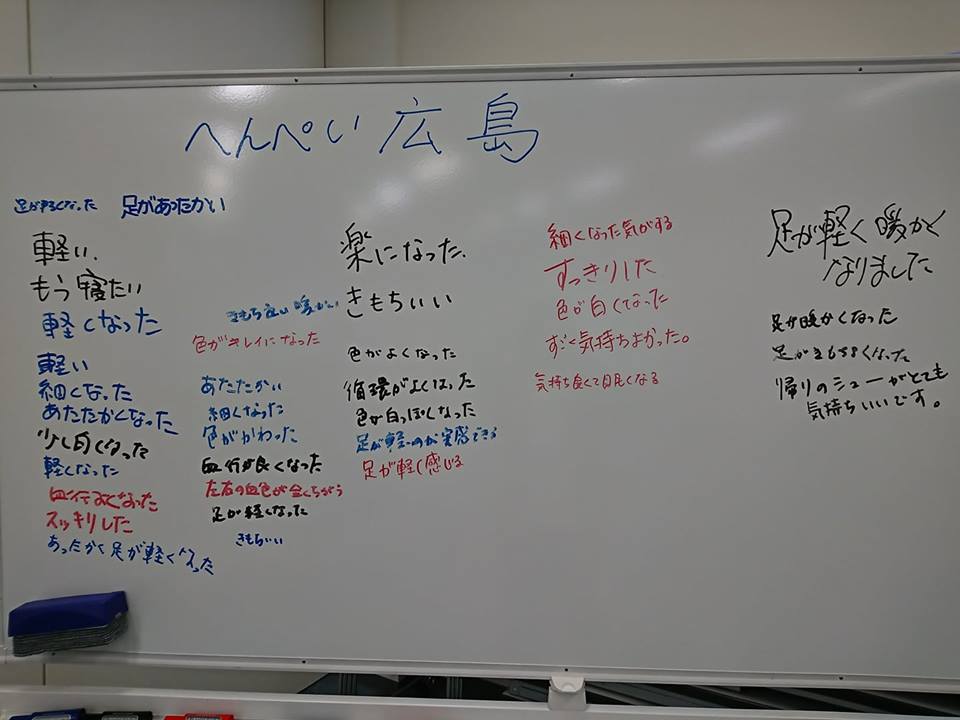 へんぺい 広島
足が軽くなった
足があったかい
軽い.
もう寝たい
軽くなった
軽い
細くなった
あたたかくなった
少し白くなった
軽くなった
血行よくなった
スッキリした
あったかく足が軽くなった
きもち良い 暖かい
色がキレイになった
あたたかい
細くなった
色がかわった
血行が良くなった
左右の血色が全くちがう
足が軽くなった
きもちいい
楽になった.
きもちいい
色がよくなった
循環がよくなった
色が白っぽくなった
足が軽いのが実感できる
足が軽く感じる
細くなった気がする
すっきりした
色が白くなった
すごく気持ちよかった。
気持ち良くて眠くなる
足が軽く暖かく
なりました
足が暖かくなった
足がきもちよくなった
帰りのシューがとても
気持ちいいです。